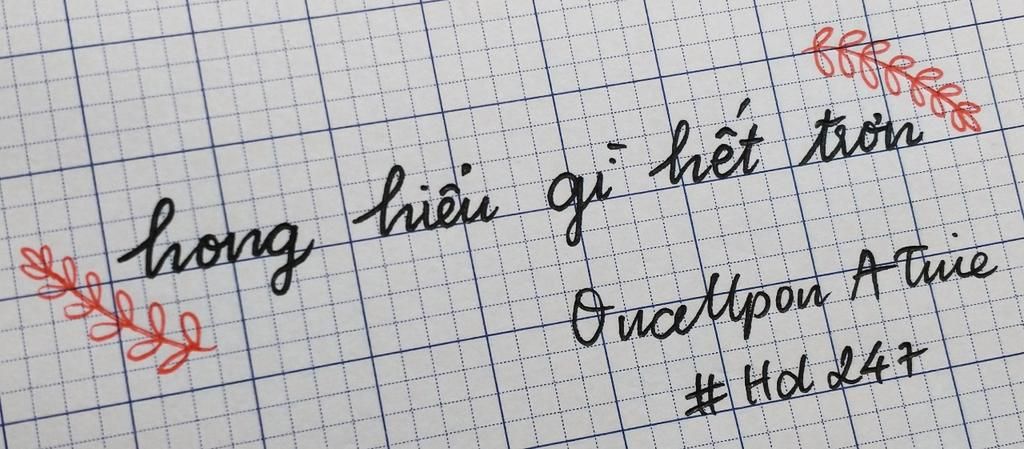 hong hiểu gì hết trơn
OnceUpon A Time
#Hd 247